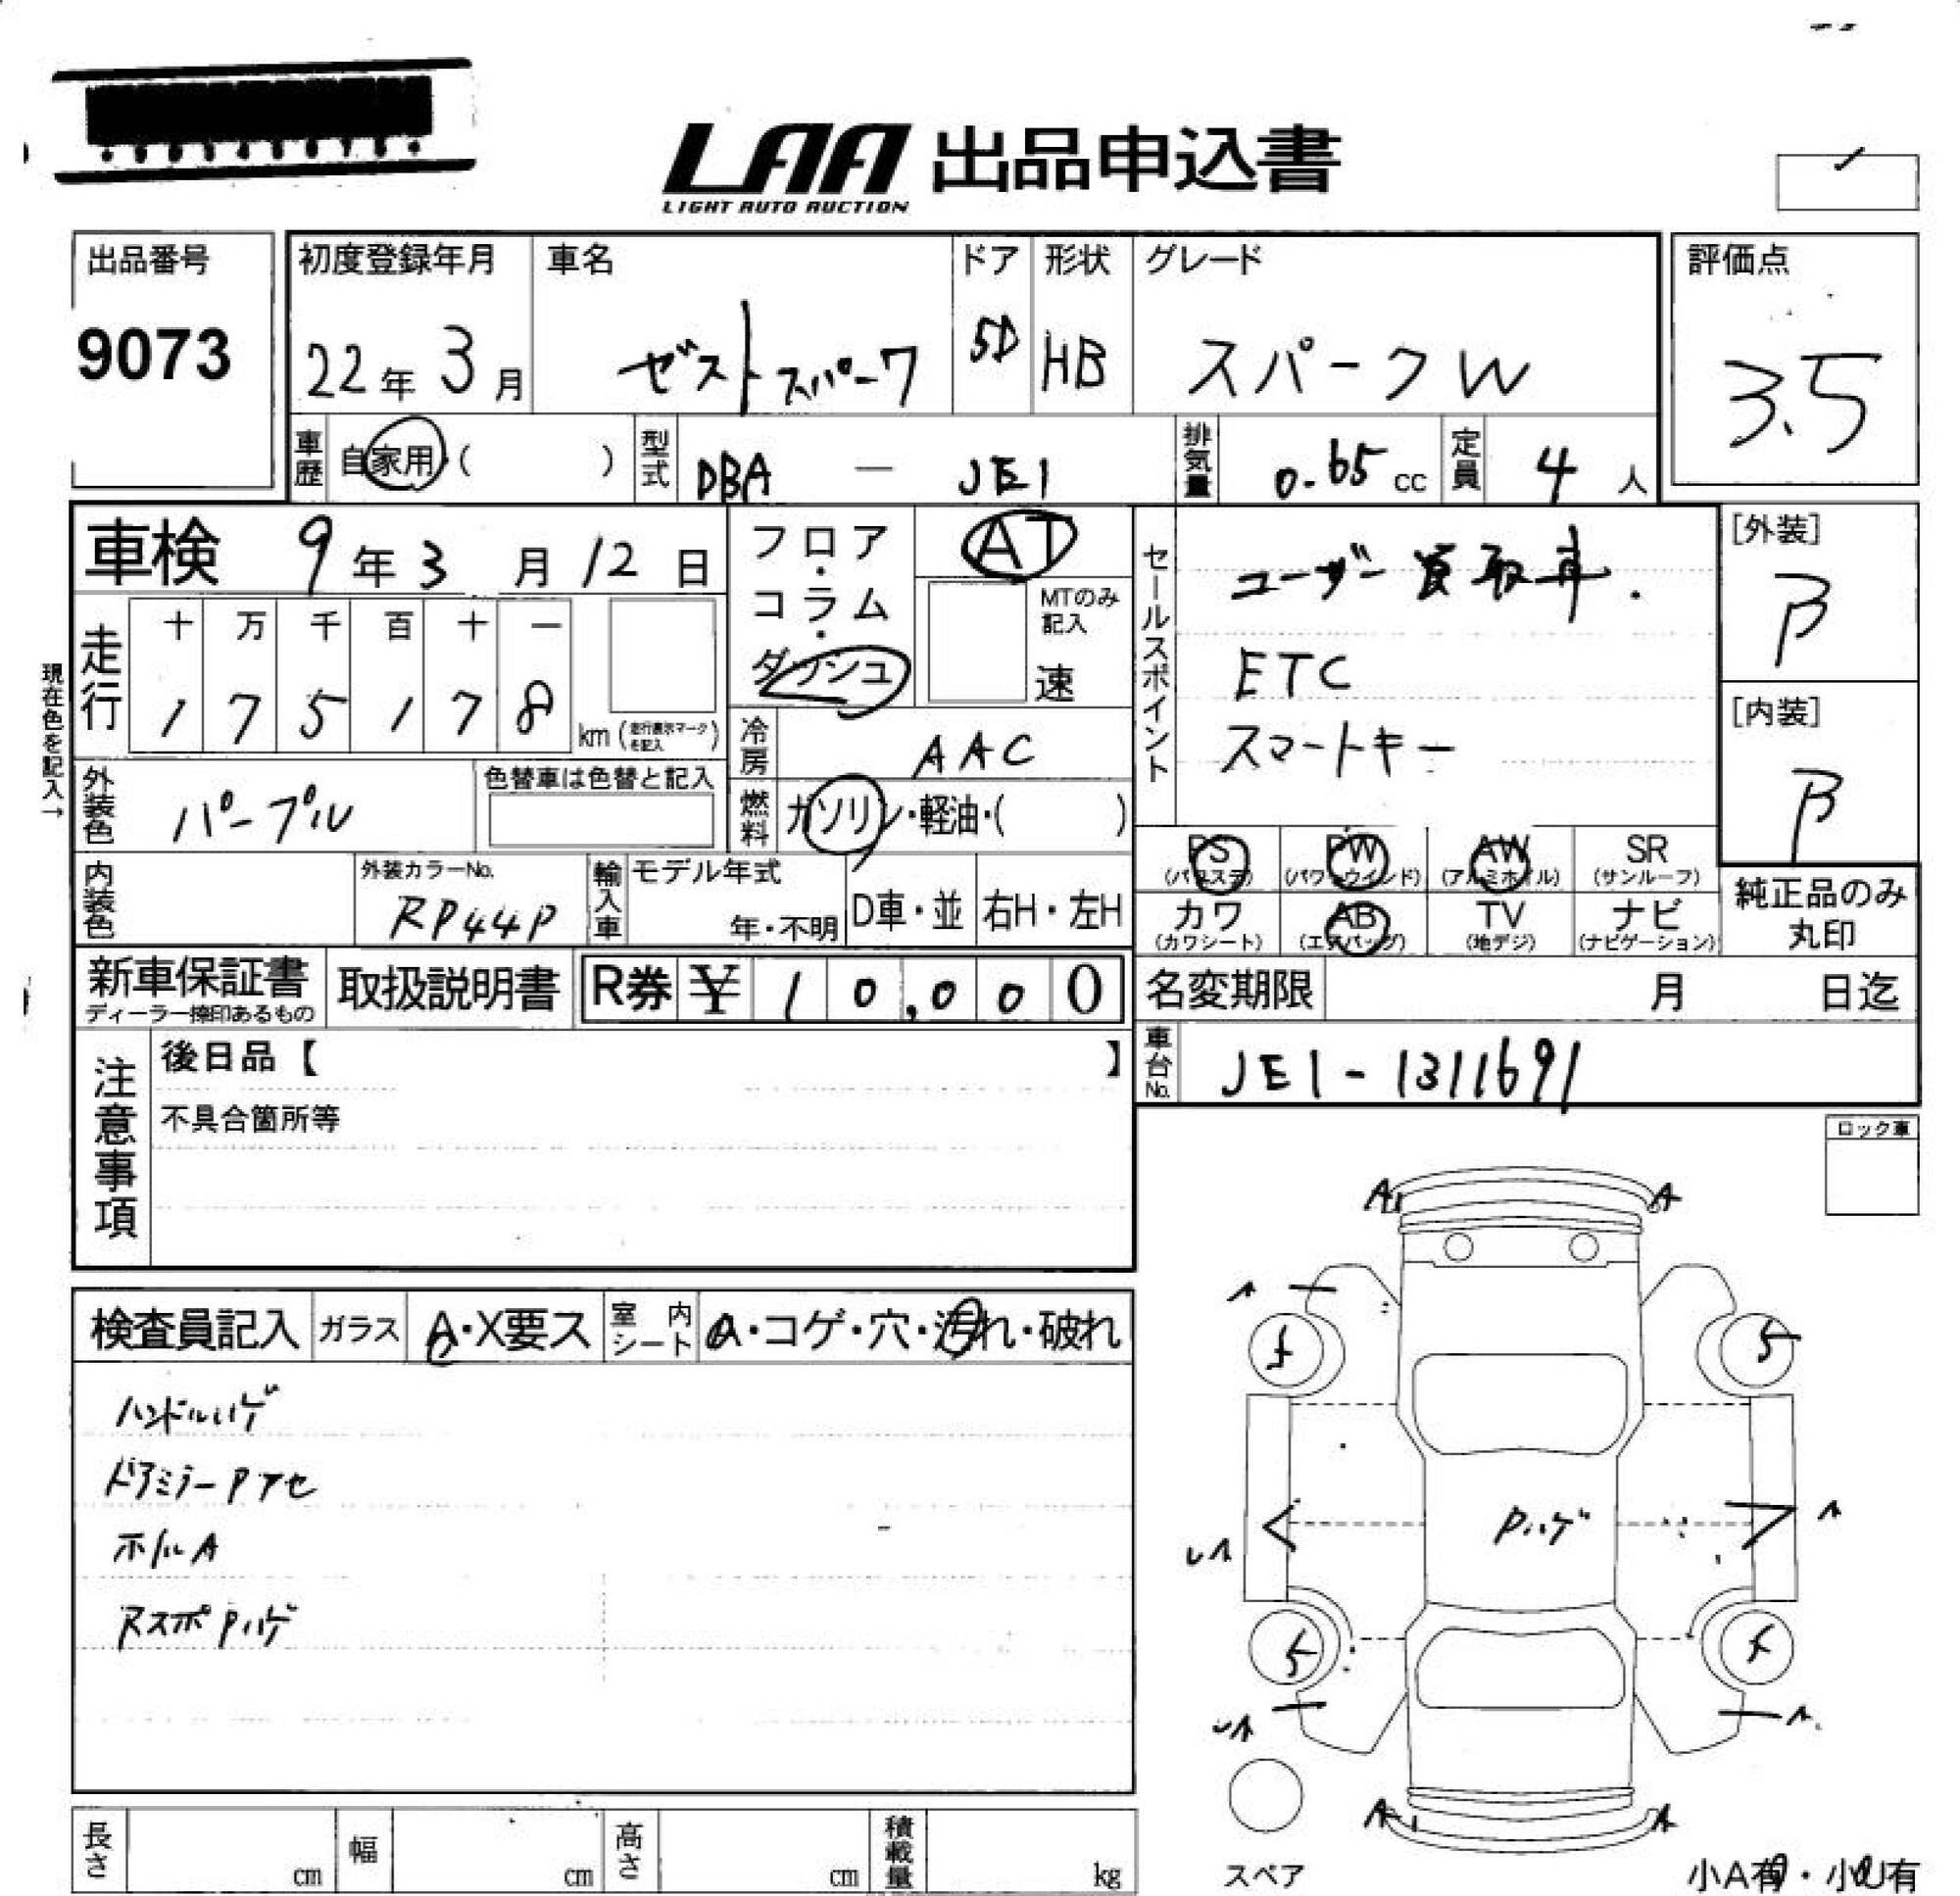 LAA 出品申込書
LIGHT AUTO AUCTION
出品番号
9073
初度登録年月
22年 3月
車名
ゼストスパーク
ドア
5D
形状
HB
グレード
スパークW
評価点
3.5
車歴 自家用・( )
型式 DBA - JE1
排気量 0.65 cc
定員 4 人
車検 9年3月12日
フロア・コラム・ダッシュ
AT
MTのみ記入
速
セールスポイント
ユーザー買取車.
ETC
スマートキー
[外装]
B
[内装]
B
現在色を記入→
走行
十 万 千 百 十 一
1 7 5 1 7 8
km (走行表示マークを記入)
冷房 AAC
外装色 パープル
色替車は色替と記入
燃料 ガソリン・軽油・( )
内装色
外装カラーNo.
RP44P
輸入車 モデル年式
年・不明
D車・並
右H・左H
PS (パワステ)
PW (パワーウインド)
AW (アルミホイル)
SR (サンルーフ)
カワ (カワシート)
AB (エアバッグ)
TV (地デジ)
ナビ (ナビゲーション)
純正品のみ丸印
新車保証書
ディーラー捺印あるもの
取扱説明書
R券 ¥ 10,000
名変期限 月 日迄
車台No. JE1-1311691
注意事項
後日品【 】
不具合箇所等
ロック車
検査員記入
ガラス A・X要ス
室内シート
・コゲ・穴・汚れ・破れ
ハンドルハゲ
ドアミラーPアセ
ホイルA
RスポPハゲ
A1
A
5
5
Pハゲ
5
A1
A
スペア
長さ cm
幅 cm
高さ cm
積載量 kg
小A有・小U有